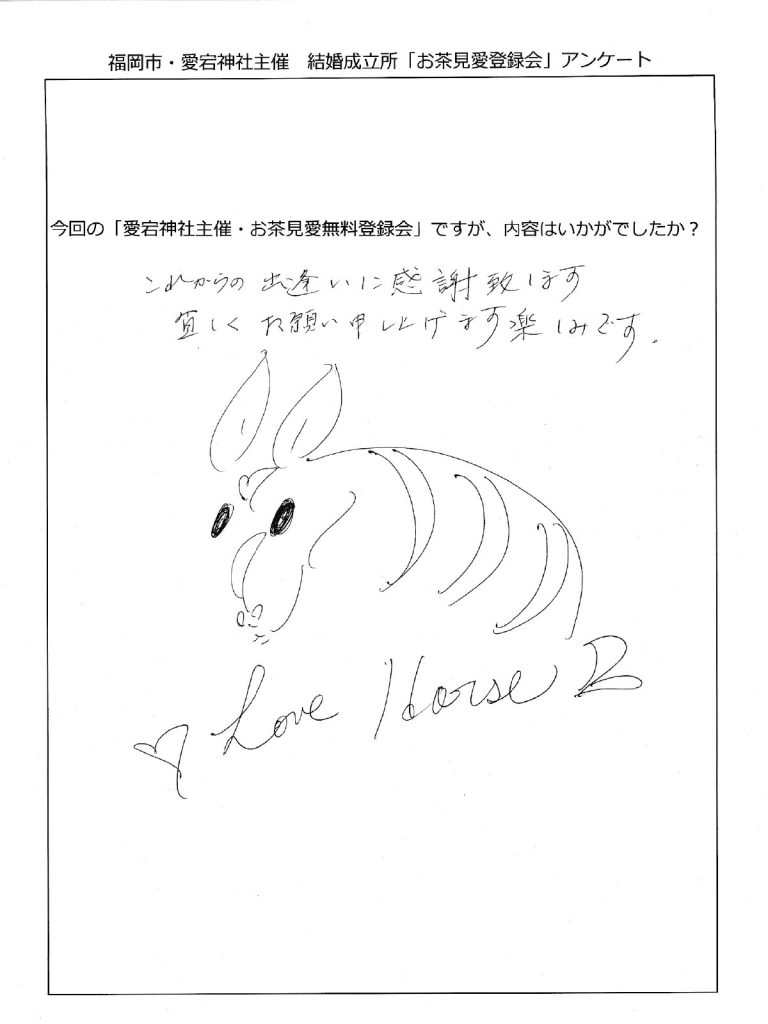 福岡市・愛宕神社主催　結婚成立所「お茶見愛登録会」アンケート
今回の「愛宕神社主催・お茶見愛無料登録会」ですが、内容はいかがでしたか？
これからの出逢いに感謝致します
宜しくお願い申し上げます楽しみです。
Love Horse